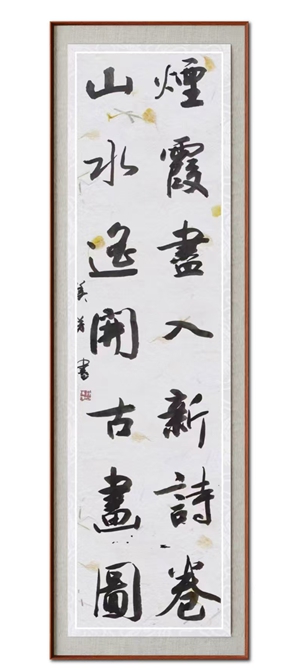 煙霞盡入新詩卷
山水遙開古畫圖